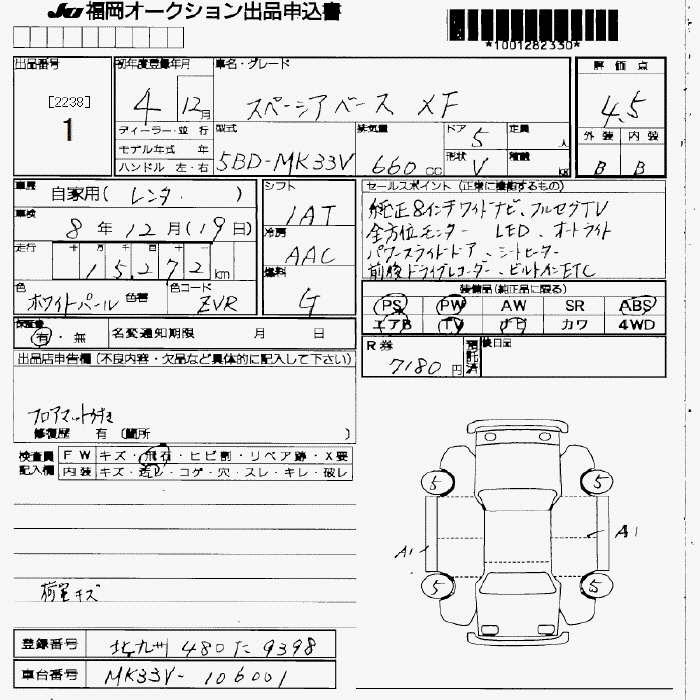 JU 福岡オークション出品申込書
*1001282330*
出品番号
[2238]
1
初年度登録年月
4 12月
車名・グレード
スペーシアベース XF
評価点
4.5
外装 内装
B B
ディーラー・並行
モデル年式 年
ハンドル 左・右
型式
5BD-MK33V
排気量
660 CC
ドア
5
形状
V
定員
人
積載
kg
車歴
自家用(レンタ )
車検
8年12月(19日)
走行
十 万 千 百 十
15,272 km
色
ホワイトパール
色替
色コード
ZVR
シフト
IAT
冷房
AAC
燃料
G
セールスポイント (正常に機能するもの)
純正8インチワイドナビ、フルセグTV
全方位モニター LED、オートライト
パワースライドドア、シートヒーター
前後ドライブレコーダー、ビルトインETC
装備品(純正品に限る)
PS PW AW SR ABS
エアB TV ナビ カワ 4WD
保証書
有・無
名変通知期限 月 日
R券
7180円
預託済
後日品
出品店申告欄(不良内容・欠品など具体的に記入して下さい)
フロアマットカギ2
修復歴 有 〔箇所 〕
検査員記入欄
FW キズ・飛石・ヒビ割・リペア跡・X要
内装 キズ・汚レ・コゲ・穴・スレ・キレ・破レ
5 5
A1 A1
5 5
荷室キズ
登録番号
北九州 480 た 9398
車台番号
MK33V-106001